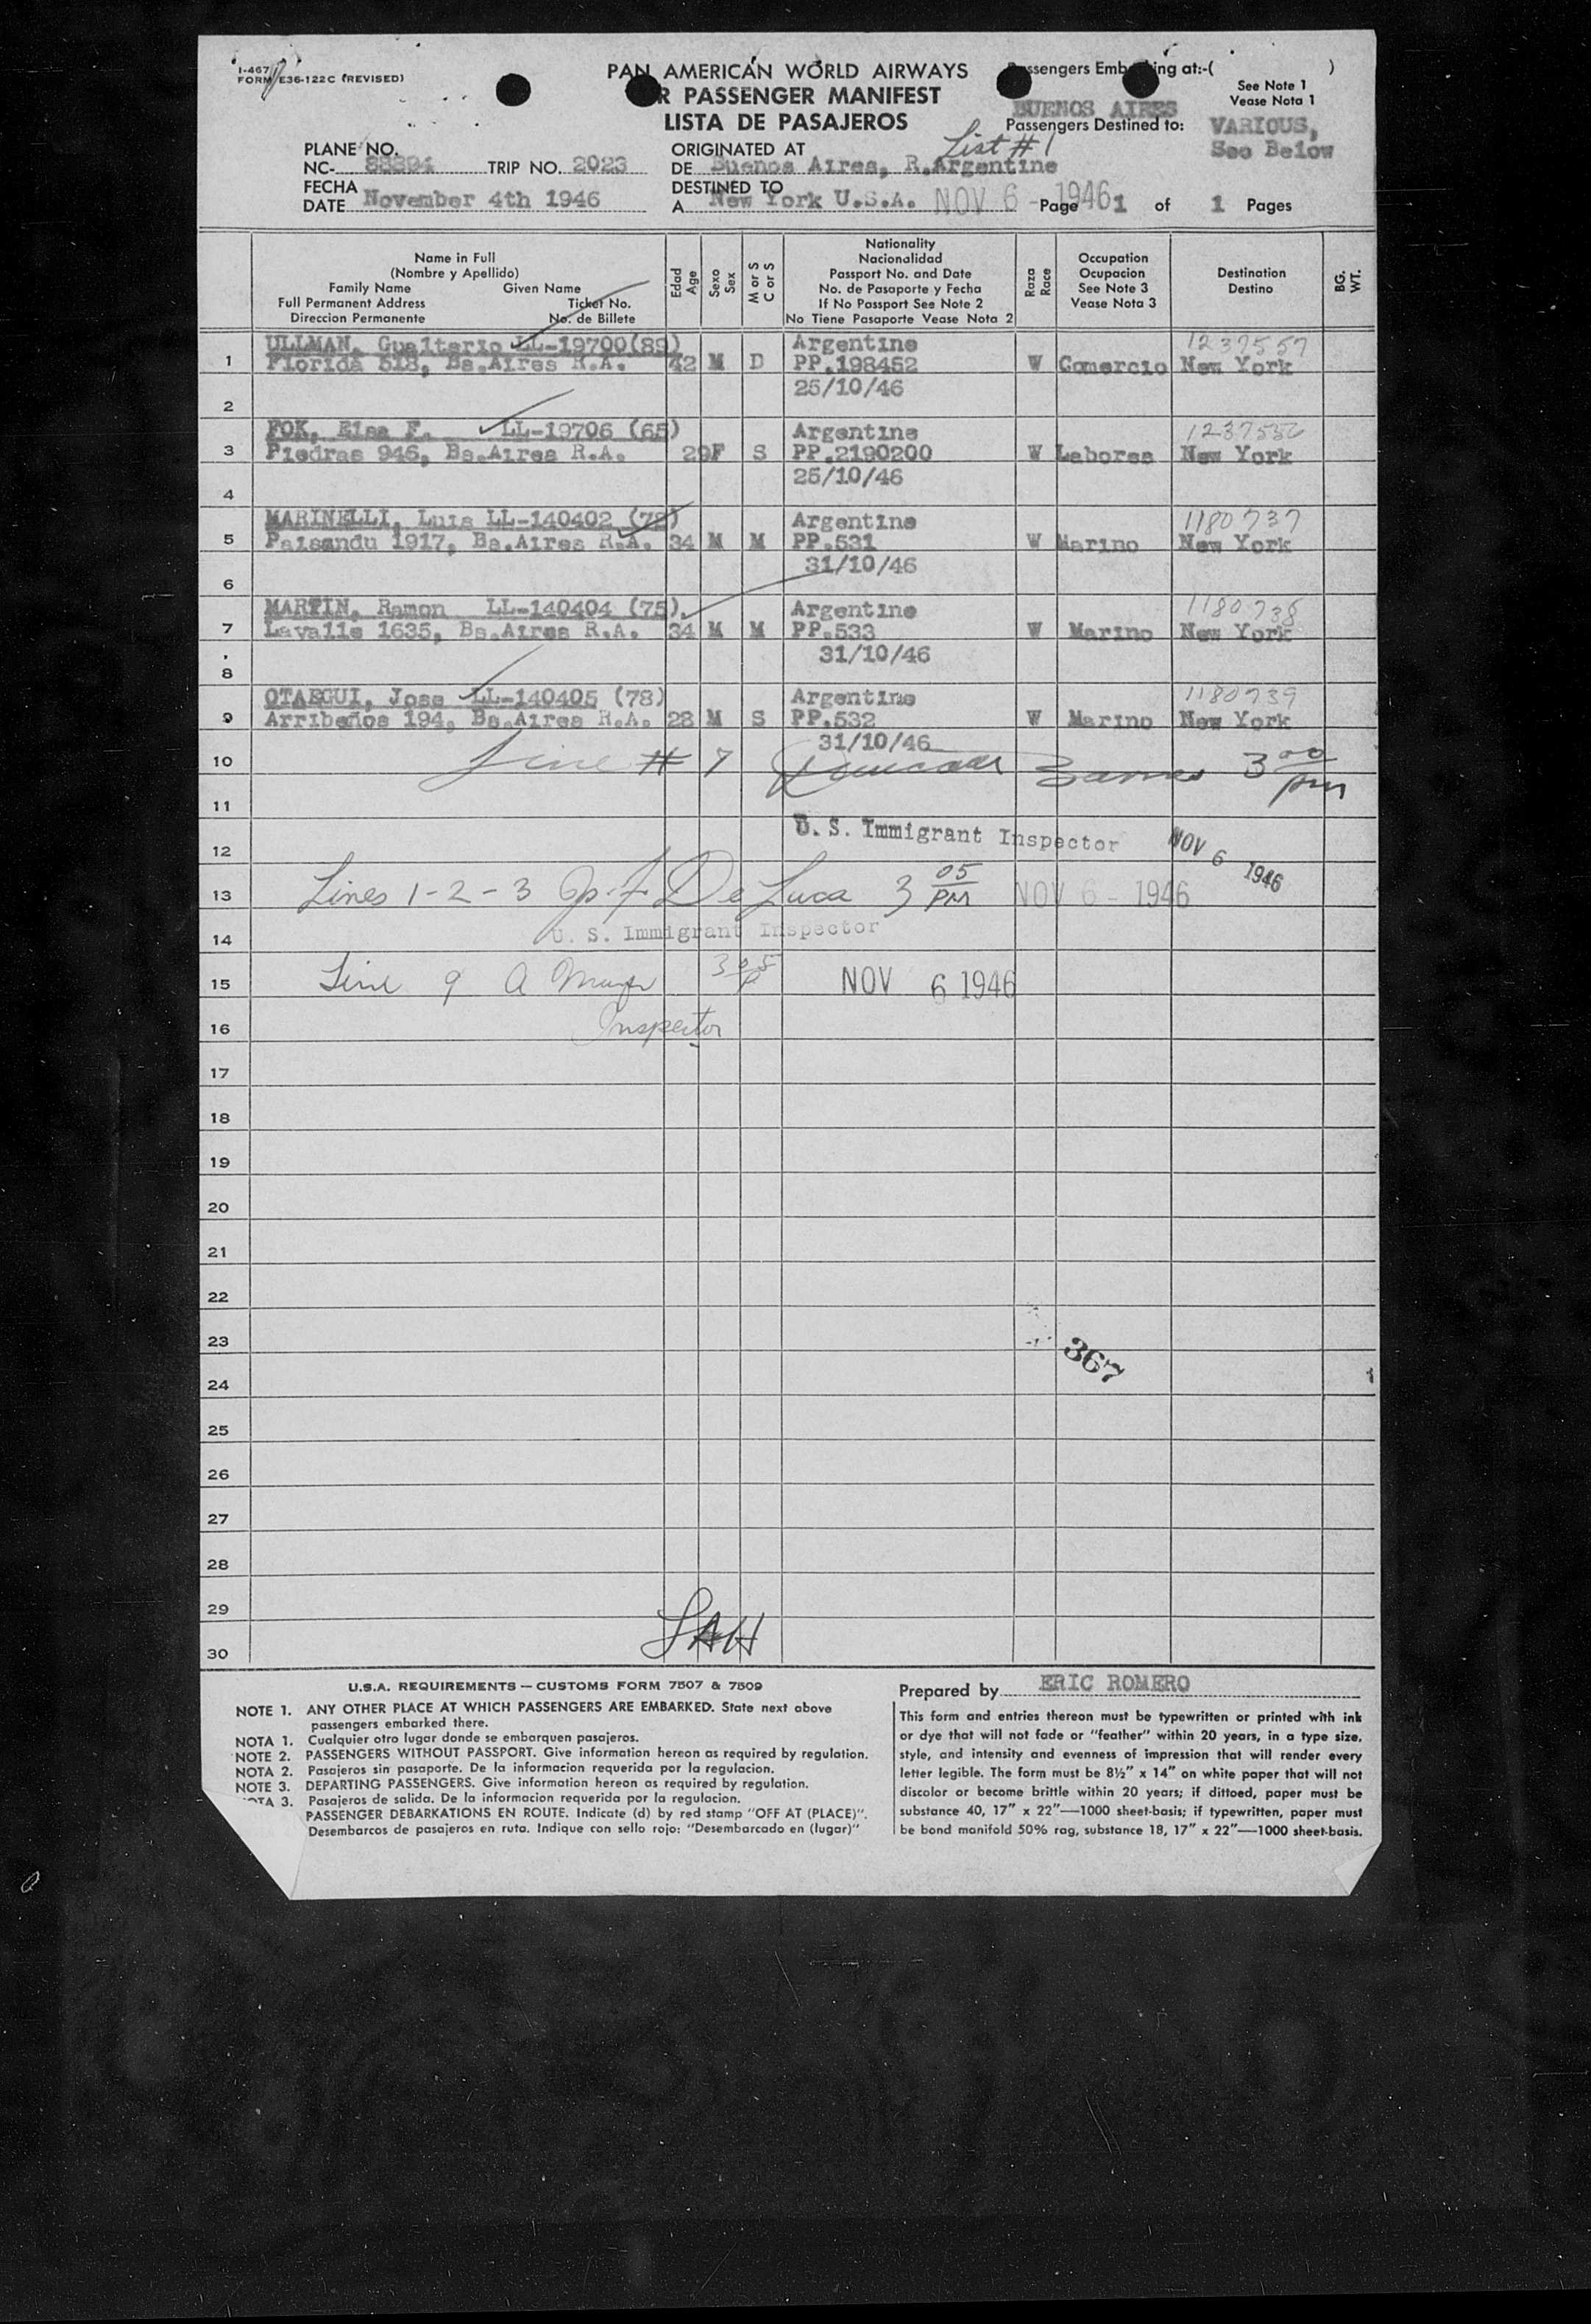 I-467
FORM E36-122C (REVISED)
PAN AMERICAN WORLD AIRWAYS
R PASSENGER MANIFEST
LISTA DE PASAJEROS
Passengers Embarking at:-( )
See Note 1
Vease Nota 1
BUENOS AIRES
Passengers Destined to:
VARIOUS,
See Below
List # 1
PLANE NO.
NC- 88894 TRIP NO. 2023
ORIGINATED AT
DE Buenos Aires, R.Argentine
FECHA
DATE November 4th 1946
DESTINED TO
A New York U.S.A. NOV 6 - 1946 Page 1 of 1 Pages
Name in Full
(Nombre y Apellido)
Family Name Given Name
Full Permanent Address Ticket No.
Direccion Permanente No. de Billete
Edad
Age
Sexo
Sex
M or S
C or S
Nationality
Nacionalidad
Passport No. and Date
No. de Pasaporte y Fecha
If No Passport See Note 2
No Tiene Pasaporte Vease Nota 2
Raza
Race
Occupation
Ocupacion
See Note 3
Vease Nota 3
Destination
Destino
BG.
WT.
ULLMAN, Gualterio LL-19700(89) Argentine 1237557
1 Florida 518, Bs.Aires R.A. 42 M D PP.198452 W Comercio New York
25/10/46
2
FOK, Elsa F. LL-19706 (65) Argentine 1237556
3 Piedras 946, Bs.Aires R.A. 29 F S PP.2190200 W Labores New York
25/10/46
4
MARINELLI, Luis LL-140402 (72) Argentine 1180737
5 Paisandu 1917, Bs.Aires R.A. 34 M M PP.531 W Marino New York
31/10/46
6
MARTIN, Ramon LL-140404 (75) Argentine 1180738
7 Lavalle 1635, Bs.Aires R.A. 34 M M PP.533 W Marino New York
31/10/46
8
OTAEGUI, Jose LL-140405 (78) Argentine 1180739
9 Arribeños 194, Bs.Aires R.A. 28 M S PP.532 W Marino New York
31/10/46
10 Line # 7 3 00 pm
11
U. S. Immigrant Inspector NOV 6 1946
12
13 Lines 1-2-3 De Luca 3 05 PM NOV 6 - 1946
14 U. S. Immigrant Inspector
15 Line 9 A 3 05 P NOV 6 1946
16 Inspector
17
18
19
20
21
22
23
367
24
25
26
27
28
29
SAH
30
U.S.A. REQUIREMENTS — CUSTOMS FORM 7507 & 7509
NOTE 1. ANY OTHER PLACE AT WHICH PASSENGERS ARE EMBARKED. State next above
passengers embarked there.
NOTA 1. Cualquier otro lugar donde se embarquen pasajeros.
NOTE 2. PASSENGERS WITHOUT PASSPORT. Give information hereon as required by regulation.
NOTA 2. Pasajeros sin pasaporte. De la informacion requerida por la regulacion.
NOTE 3. DEPARTING PASSENGERS. Give information hereon as required by regulation.
OTA 3. Pasajeros de salida. De la informacion requerida por la regulacion.
PASSENGER DEBARKATIONS EN ROUTE. Indicate (d) by red stamp "OFF AT (PLACE)".
Desembarcos de pasajeros en ruta. Indique con sello rojo: "Desembarcado en (lugar)"
Prepared by ERIC ROMERO
This form and entries thereon must be typewritten or printed with ink
or dye that will not fade or "feather" within 20 years, in a type size,
style, and intensity and evenness of impression that will render every
letter legible. The form must be 8½" x 14" on white paper that will not
discolor or become brittle within 20 years; if dittoed, paper must be
substance 40, 17" x 22"—1000 sheet-basis; if typewritten, paper must
be bond manifold 50% rag, substance 18, 17" x 22"—1000 sheet-basis.